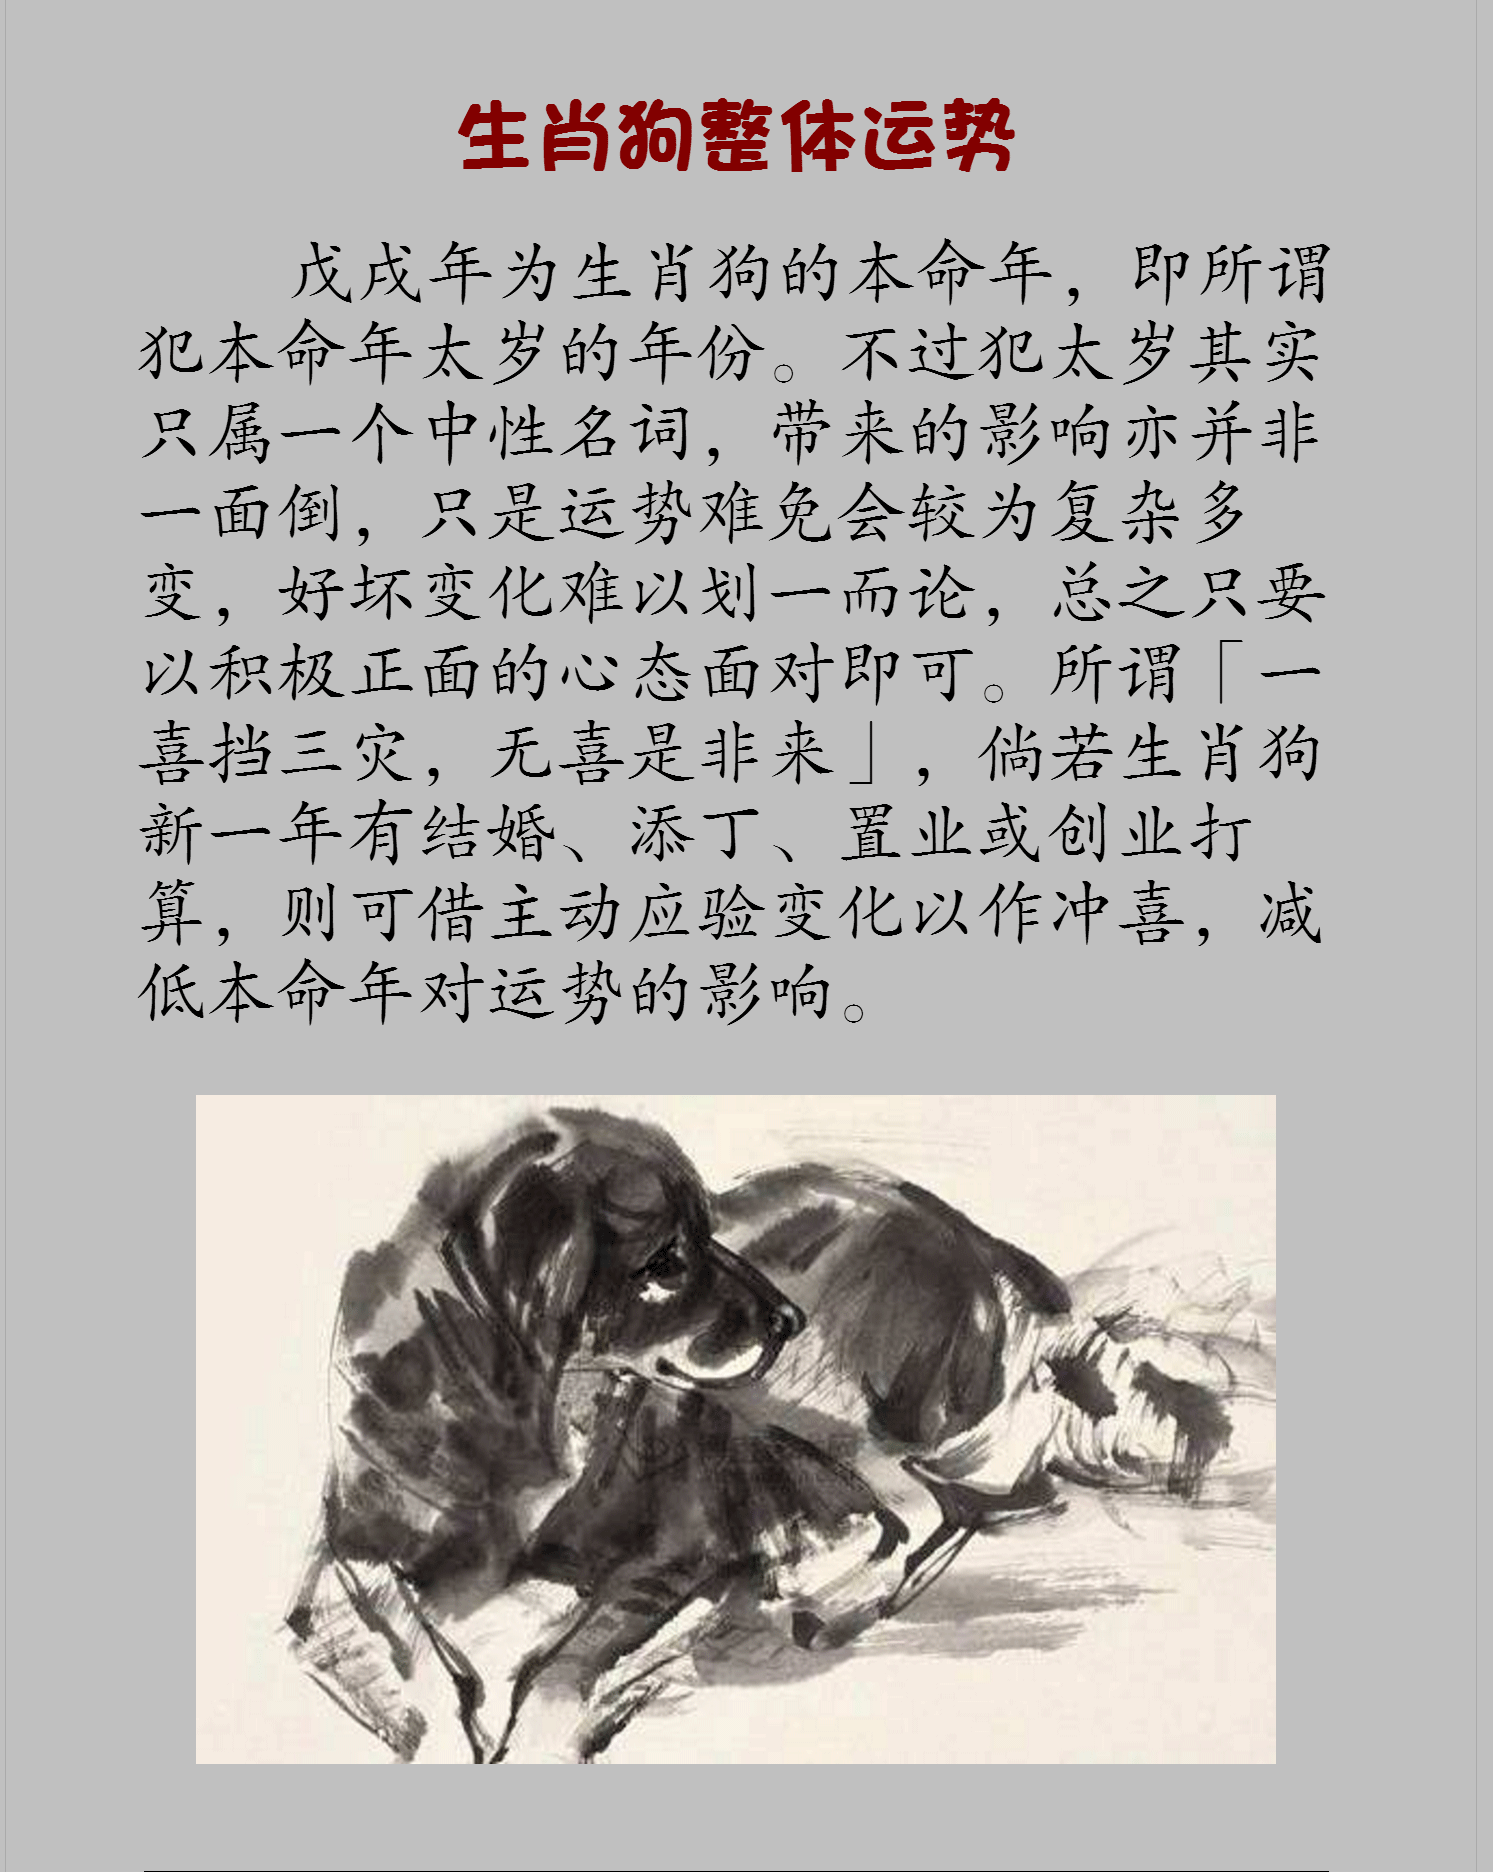 生肖狗整体运势
戊戌年为生肖狗的本命年，即所谓
犯本命年太岁的年份。不过犯太岁其实
只属一个中性名词，带来的影响亦并非
一面倒，只是运势难免会较为复杂多
变，好坏变化难以划一而论，总之只要
以积极正面的心态面对即可。所谓「一
喜挡三灾，无喜是非来」，倘若生肖狗
新一年有结婚、添丁、置业或创业打
算，则可借主动应验变化以作冲喜，减
低本命年对运势的影响。